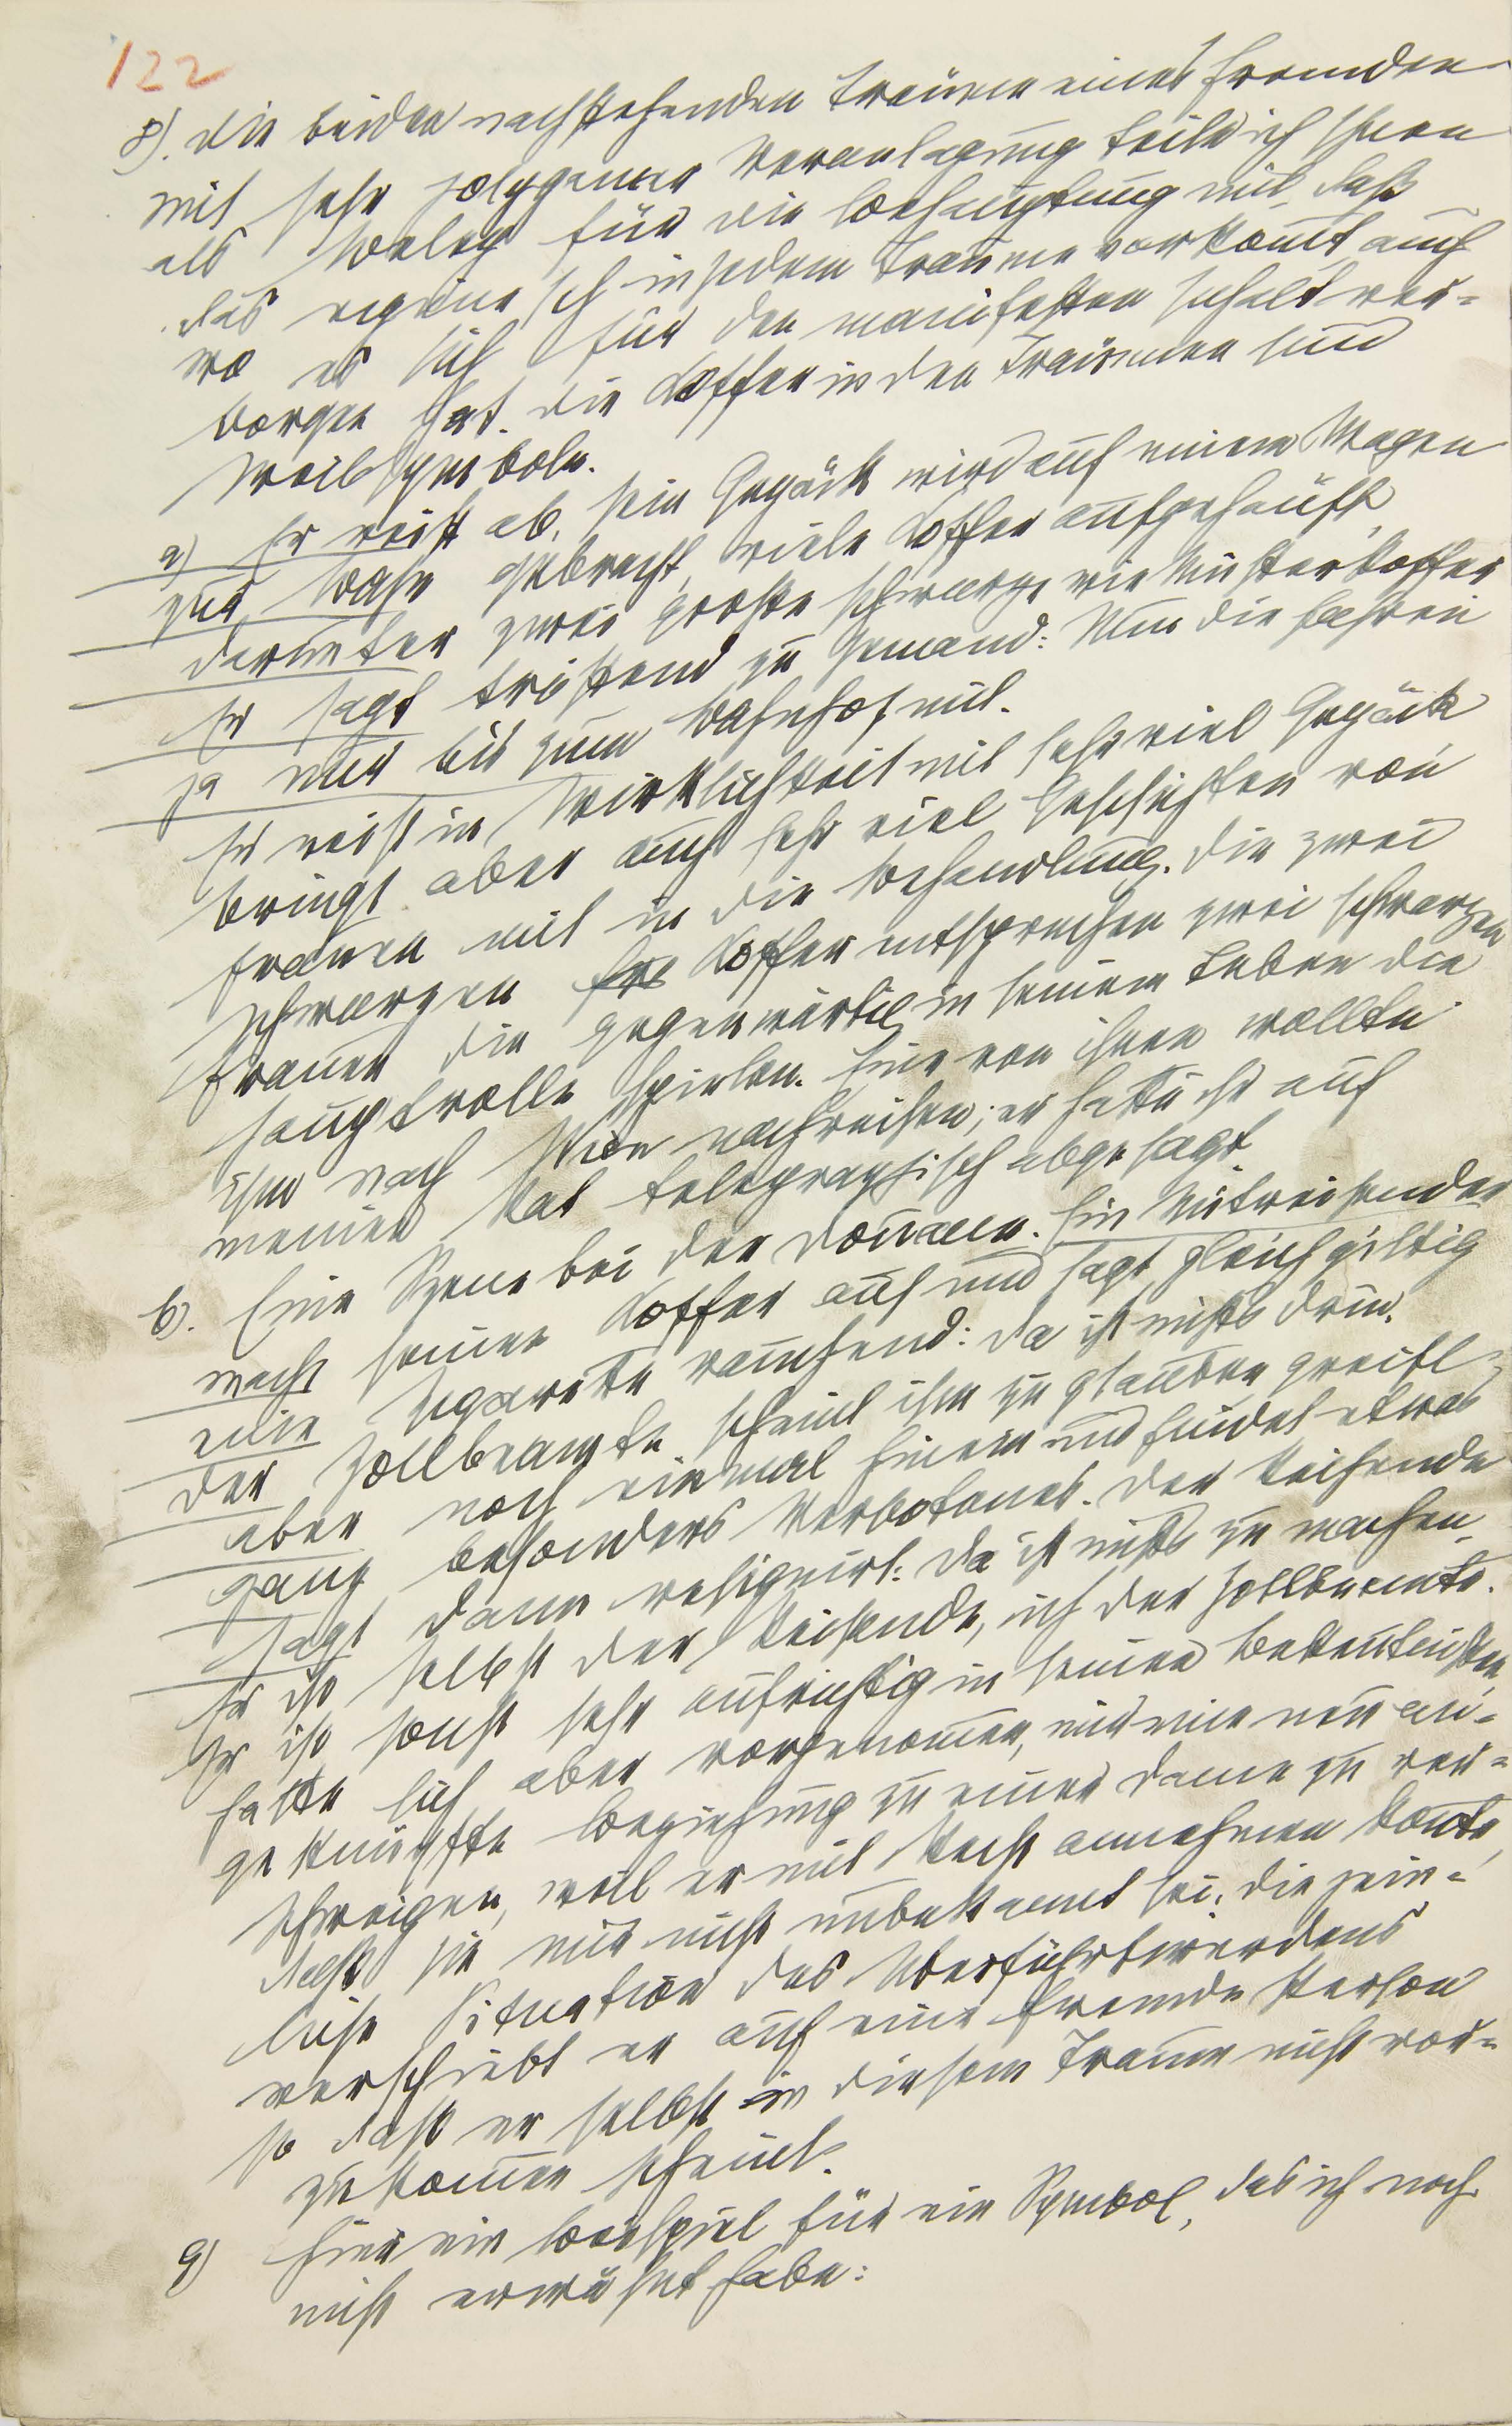 122
8). Die beiden nachstehenden Träume eines Fremden
mit sehr polygamer Veranlagung teile ich Ihnen
als Beleg für die Behauptung mit, daß
das eigene Ich in jedem Traume vorkommt auch
wo es sich für den manifesten Inhalt ver=
borgen hat. Die Koffer in den Träumen sind
Weibsymbole.
a) Er reist ab, sein Gepäck wird auf einem Wagen
zur Bahn gebracht, viele Koffer aufgehäuft,
darunter zwei große schwarze wie Musterkoffer
Er sagt tröstend zu jemand: Nun die fahren
ja nur bis zum Bahnhof mit.
Er reist in Wirklichkeit mit sehr viel Gepäck
bringt aber auch sehr viel Geschichten von
Frauen mit in die Behandlung. Die zwei
schwarzen Koffer entsprechen zwei schwarzen
Frauen die gegenwärtig in seinem Leben die
Hauptrolle spielen. Eine von ihnen wollte
ihm nach Wien nachreisen; er hatte ihr auf
meinen Rat telegraphisch abgesagt
b). Eine Szene bei der Douane. Ein Mitreisender
macht seinen Koffer auf und sagt gleichgiltig
eine Zigarette rauchend: Da ist nichts drin.
Der Zollbeamte scheint ihm zu glauben greift
aber noch einmal hinein und findet etwas
ganz besonders Verbotenes. Der Reisende
sagt dann resignirt: Da ist nichts zu machen.
Er ist selbst der Reisende, ich der Zollbeamte.
Er ist sonst sehr aufrichtig in seinen Bekenntnissen,
hatte sich aber vorgenommen, mir eine neu an=
geknüpfte Beziehung zu einer Dame zu ver=
schweigen, weil er mit Recht annehmen konnte,
daß sie mir nicht unbekannt sei. Die pein=
liche Situation des Überführtwerdens
verschiebt er auf eine fremde Person
so daß er selbst in diesem Traum nicht vor=
zukommen scheint.
9) Hier ein Beispiel für ein Symbol, das ich noch
nicht erwähnt habe: